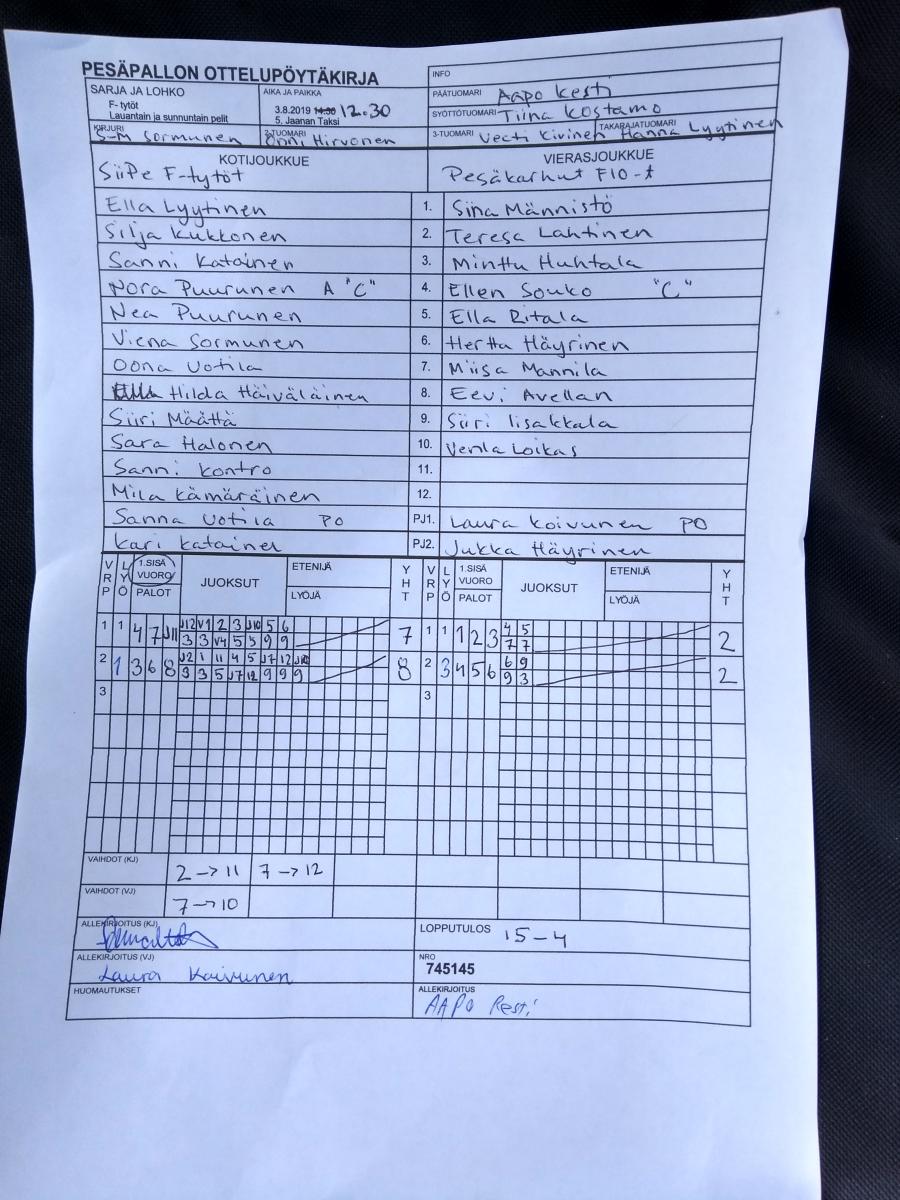 PESÄPALLON OTTELUPÖYTÄKIRJA
INFO
SARJA JA LOHKO
F- tytöt
Lauantain ja sunnuntain pelit
AIKA JA PAIKKA
3.8.2019 14.30 12.30
5. Jaanan Taksi
PÄÄTUOMARI Aapo Kesti
SYÖTTÖTUOMARI Tiina Kostamo
KIRJURI S-M Sormunen
2-TUOMARI Onni Hirvonen
3-TUOMARI Veeti Kivinen
TAKARAJATUOMARI Hanna Lyytinen
KOTIJOUKKUE VIERASJOUKKUE
SiiPe F-tytöt Pesäkarhut F10-t
Ella Lyytinen 1. Sina Männistö
Silja Kukkonen 2. Teresa Lahtinen
Sanni Katainen 3. Minttu Huhtala
Nora Puurunen A "C" 4. Ellen Souko "C"
Nea Puurunen 5. Ella Ritala
Viena Sormunen 6. Hertta Häyrinen
Oona Uotila 7. Miisa Mannila
Hilda Häiväläinen 8. Eevi Avellan
Siiri Määttä 9. Siiri Iisakkala
Sara Halonen 10. Venla Loikas
Sanni Kontro 11.
Mila Kämäräinen 12.
Sanna Uotila PO PJ1. Laura Koivunen PO
Kari Katainen PJ2. Jukka Häyrinen
VRP LYÖ 1.SISÄ VUORO PALOT JUOKSUT ETENIJÄ LYÖJÄ YHT VRP LYÖ 1.SISÄ VUORO PALOT JUOKSUT ETENIJÄ LYÖJÄ YHT
1 1 4 7 J11 J12 V1 2 3 J10 5 6 7 1 1 1 2 3 4 5 2
3 3 V4 5 5 9 9 7 7
2 1 3 6 8 J2 1 11 4 5 J7 12 J10 8 2 3 4 5 6 6 9 2
3 3 5 J7 12 9 9 9 9 3
3 3
VAIHDOT (KJ) 2→11 7→12
VAIHDOT (VJ) 7→10
ALLEKIRJOITUS (KJ)
LOPPUTULOS 15-4
ALLEKIRJOITUS (VJ) Laura Koivunen
NRO
745145
HUOMAUTUKSET
ALLEKIRJOITUS
AAPO Kesti